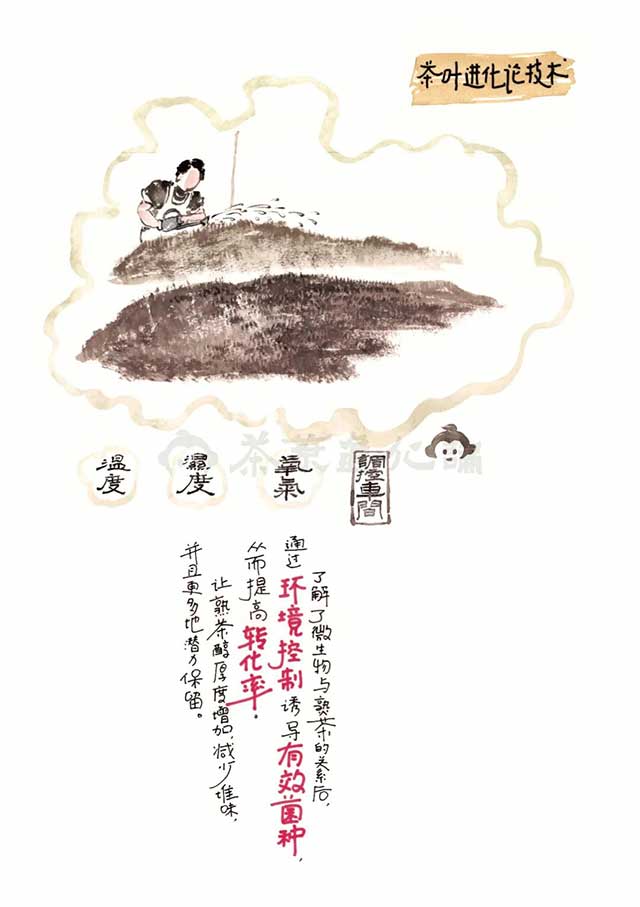 茶叶进化论技术
茶葉進化論
調控車間
氧氣
濕度
溫度
了解了微生物与熟茶的关系后，
通过环境控制诱导有效菌种，
从而提高转化率。
让熟茶醇厚度增加，减少堆味，
并且更多地潜力保留。